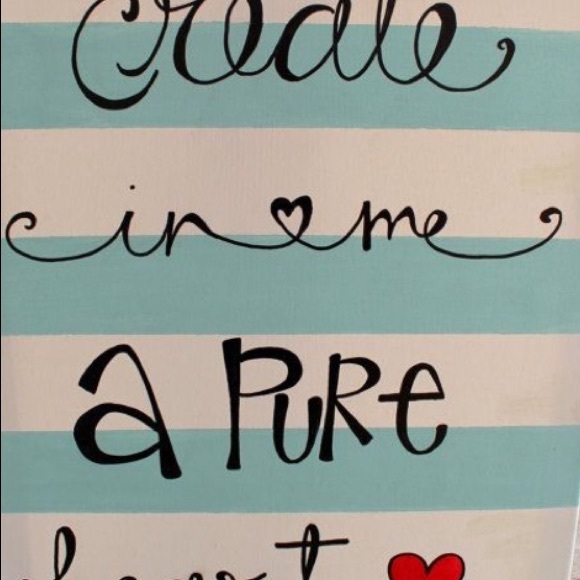 Create
in me
A PURE
heart